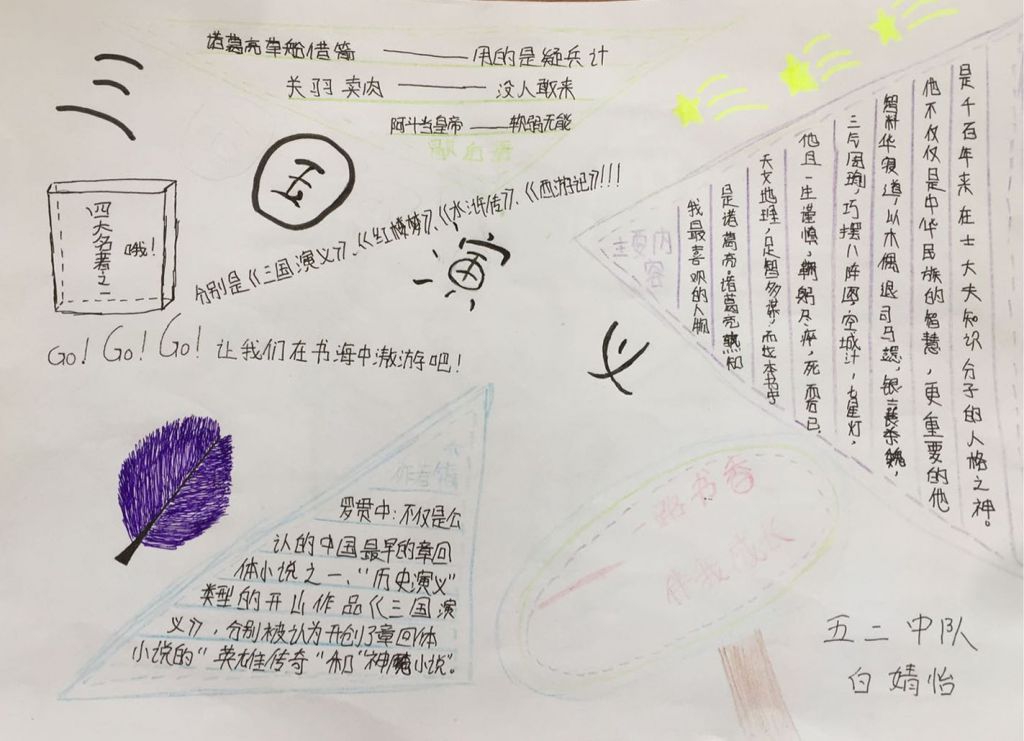 三
国
演
义
诸葛亮草船借箭——用的是缓兵计
关羽卖肉——没人敢来
阿斗当皇帝——软弱无能
歇后语
四大名著之一
哦！
分别是《三国演义》、《红楼梦》、《水浒传》、《西游记》!!!
Go! Go! Go! 让我们在书海中遨游吧!
主要内容
我最喜欢的人物
是诸葛亮，诸葛亮熟知
天文地理，足智多谋，而在本书中
他且一生谨慎，鞠躬尽瘁，死而后已，
三气周瑜，巧摆八阵图空城计，七星灯，
智料华容道，以木偶退司马懿，
他不仅仅是中华民族的智慧，更重要的他
是千百年来在士大夫知识分子的人格之神。
作者
罗贯中：不仅是公
认的中国最早的章回
体小说之一、"历史演义"
类型的开山作品《三国演
义》，分别被认为开创了章回体
小说的"英雄传奇"和"神魔小说"。
一路书香
伴我成长
五二中队
白婧怡